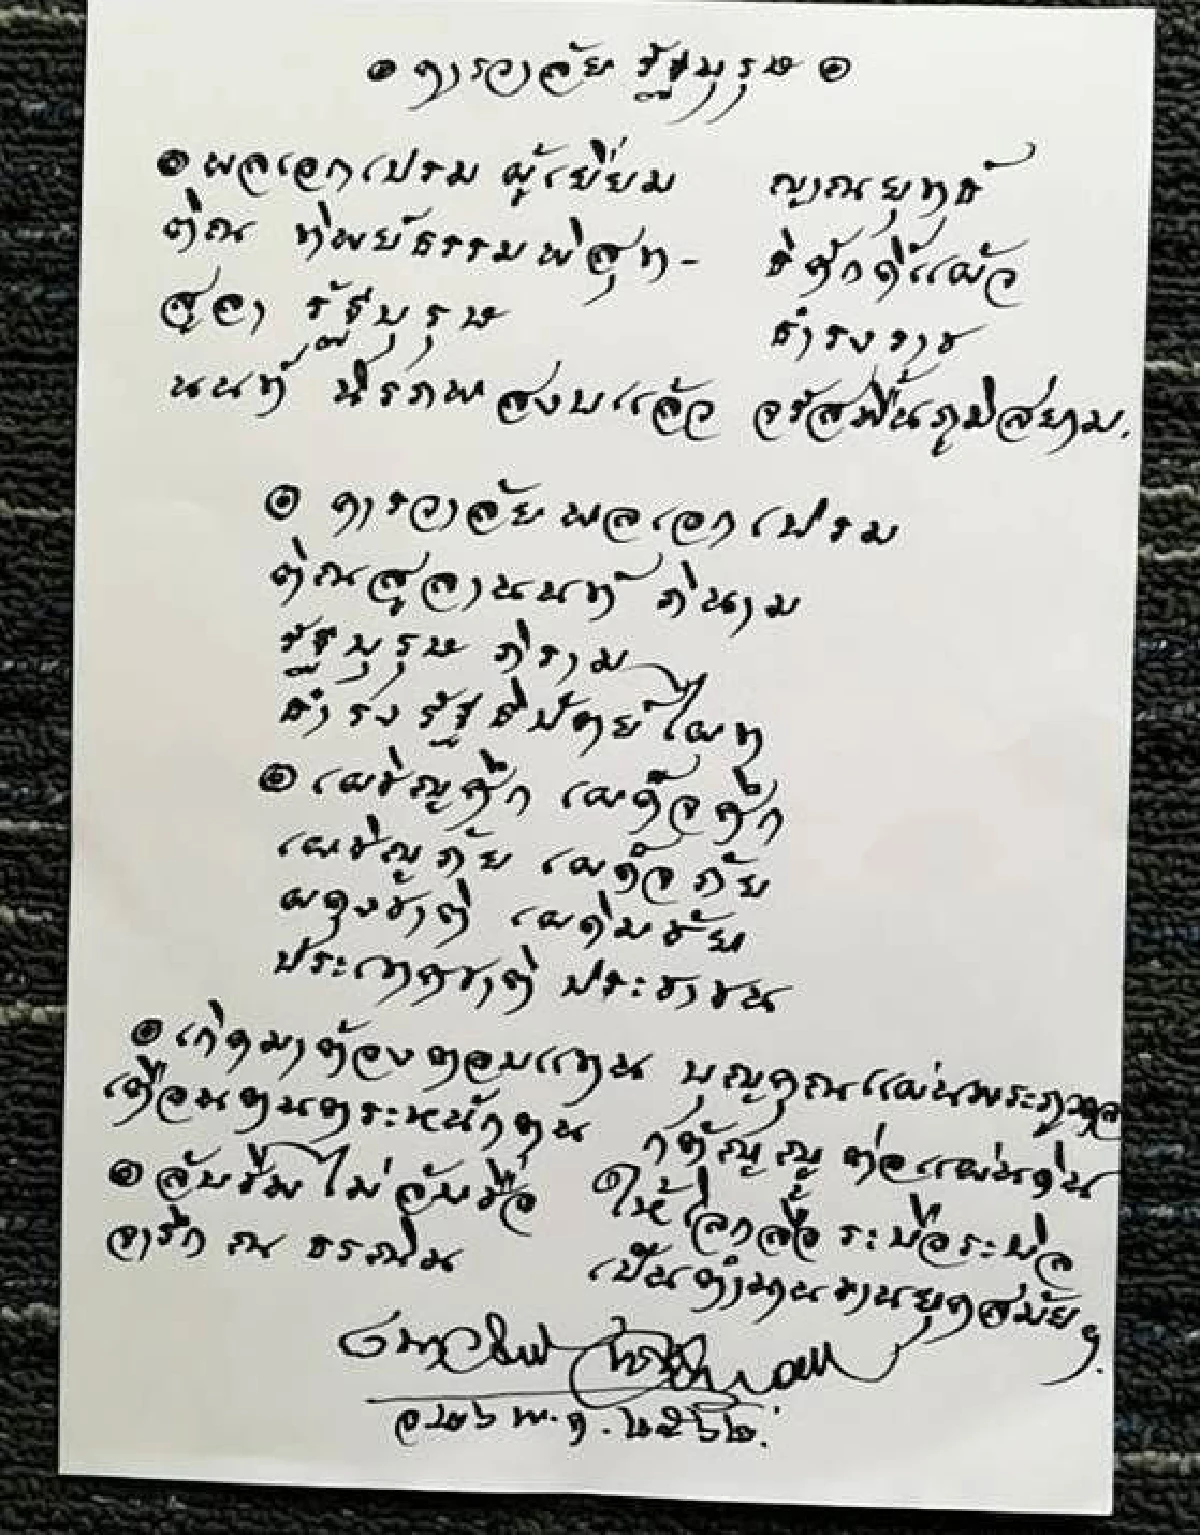 ๏ คารวาลัย รัฐบุรุษ ๏
๏ พลเอกเปรม ผู้เยี่ยม ญาณยุทธ์
ติณ ทิพย์ธรรมพิสุท- ธิศักดิ์แผ้ว
สูลา รัฐบุรุษ ธำรงราช
นนท์ นิรภพสงบแล้ว จรัสพื้นภูมิสยาม.
๏ คารวาลัยพลเอกเปรม
ติณสูลานนท์ ภินาม
รัฐบุรุษ ภิราม
ธำรงรัฐธิปัตย์ไผท
๏ เผชิญศึก เผด็จศึก
เผชิญภัย เผด็จภัย
ผดุงชาติ เผดิมชัย
ประเทศชาติ ประชาชน
๏ เกิดมาต้องตอบแทน บุญคุณแผ่นพระภูวดล
เตือนตนตระหนักตน กตัญญู ต่อแผ่นดิน
๏ ลับชีพ ไม่ลับชื่อ ให้โลกลือ ระบือระบิล
จารึก ณ ธรณิน เป็นตำนานงานยุคสมัย ฯ
๒๖ พ.ค. ๒๕๖๒.